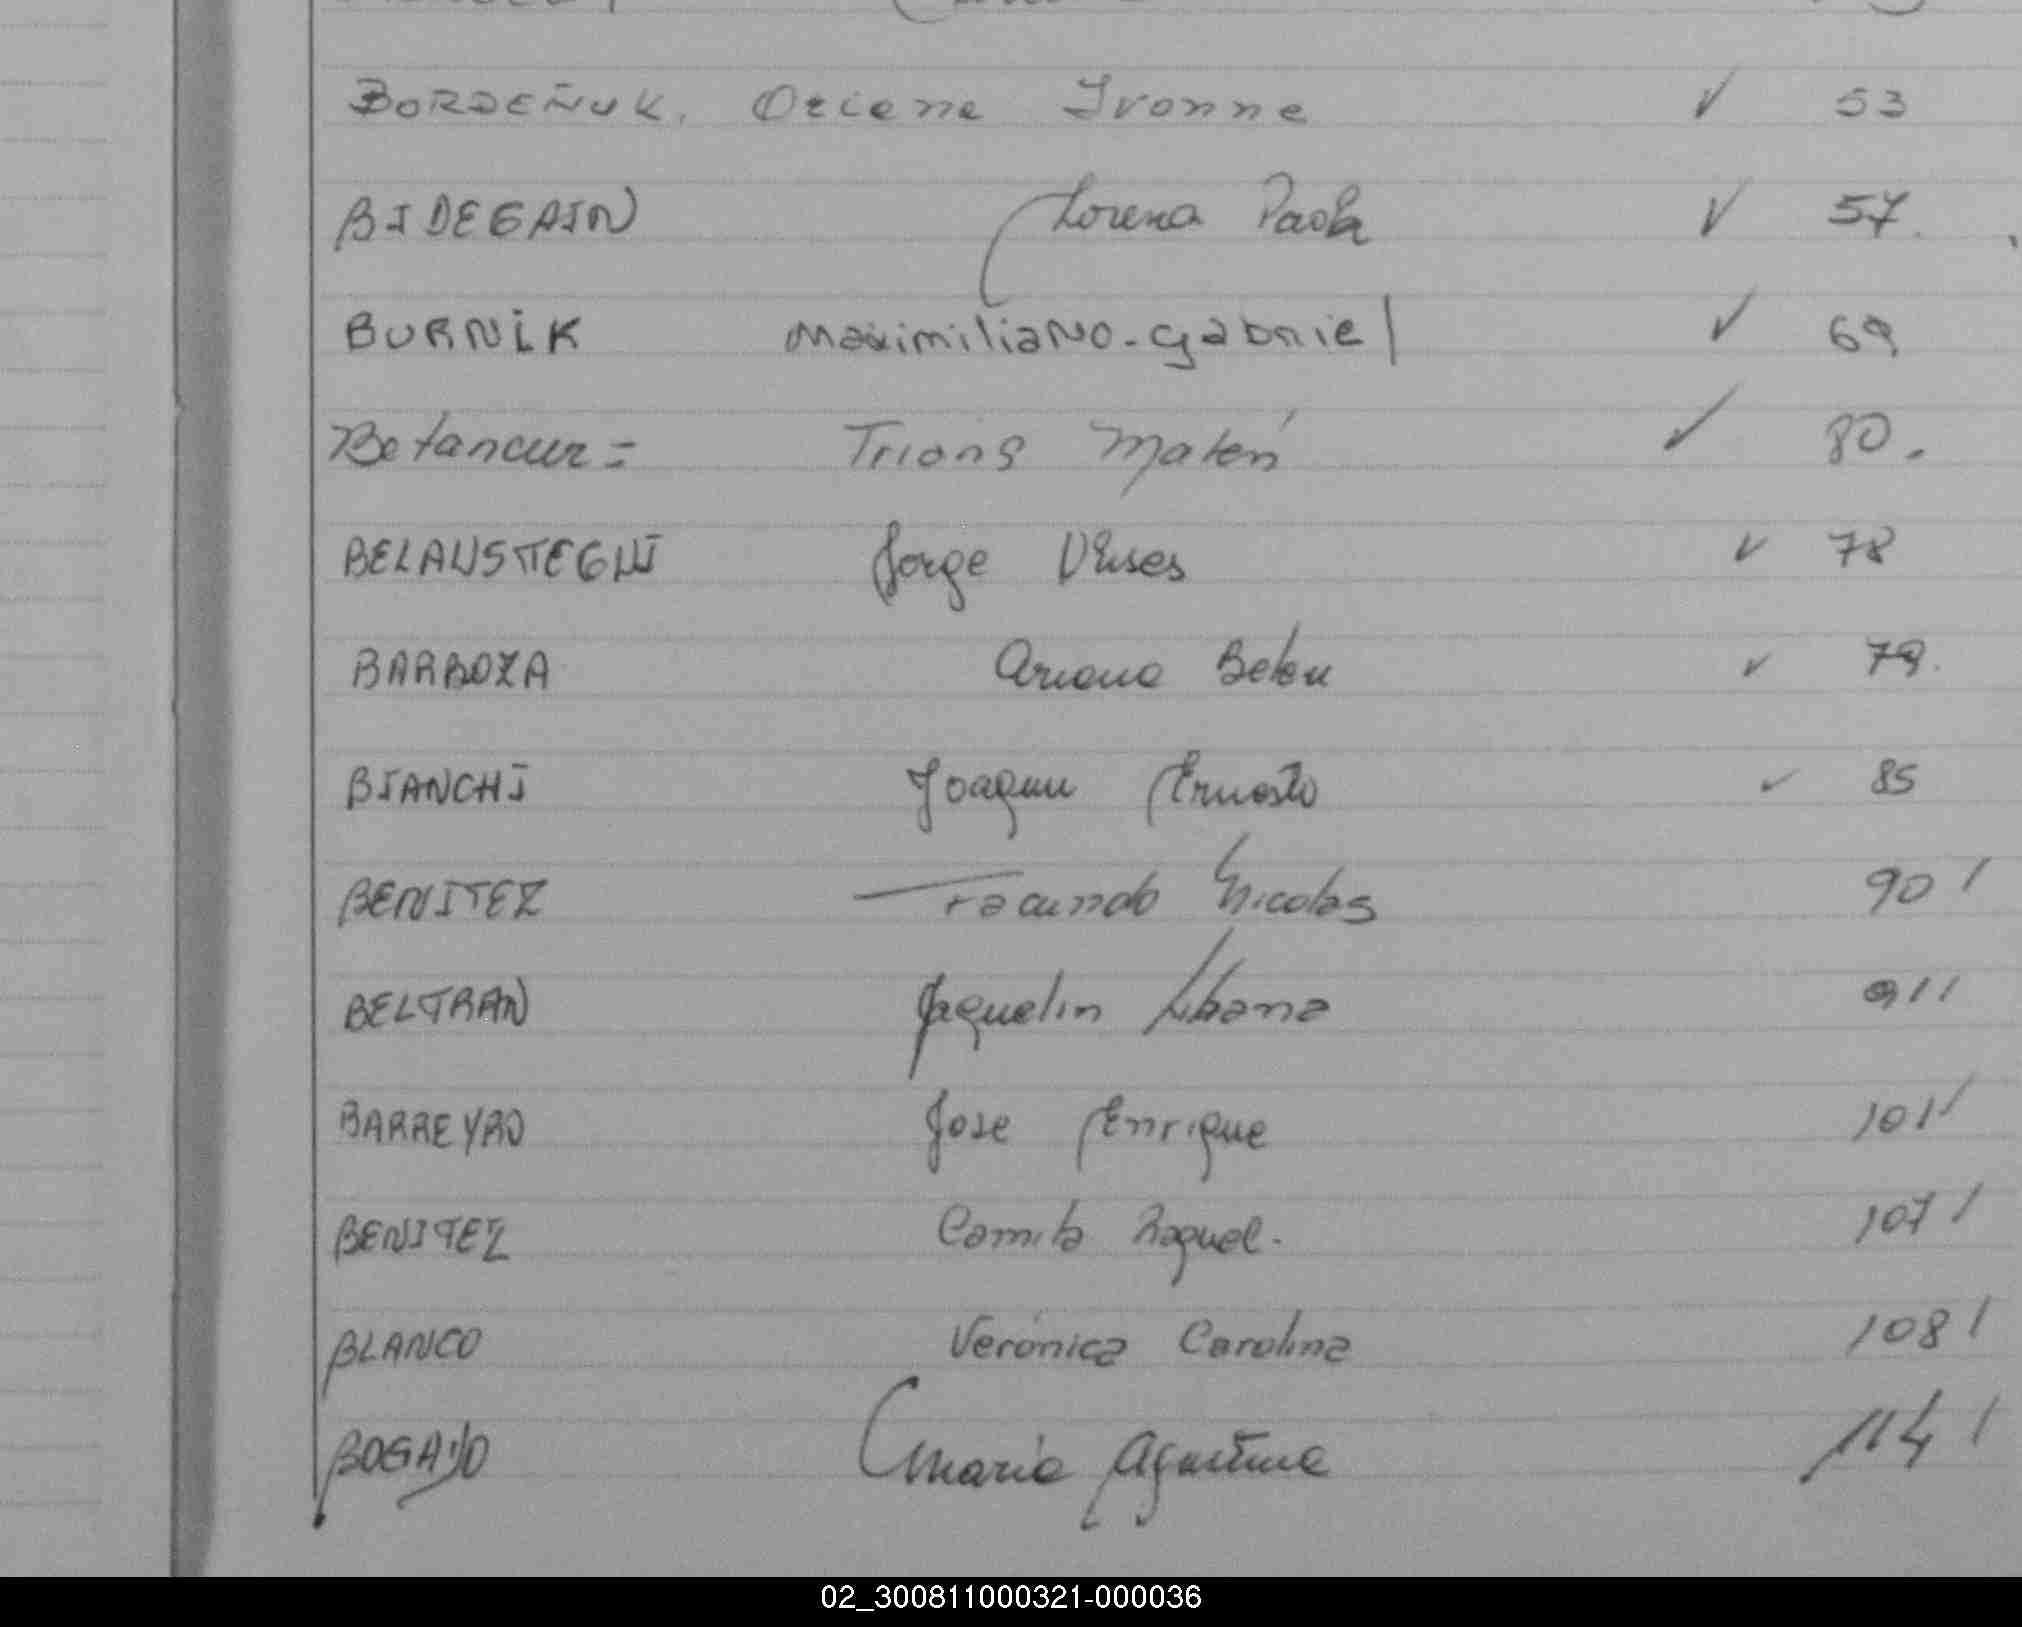 BORDEÑUK, Oriene Ivonne ✓ 53
BIDEGAIN Lorena Paola ✓ 57.
BURNIK Maximiliano-gabriel ✓ 69
Betancur= ✓ 80.
BELAUSTEGUI Jorge Ulises ✓ 78
BARBOZA Ariana Belen ✓ 79.
BIANCHI Joaquin Ernesto ✓ 85
BENITEZ Facundo Nicolas 90 /
BELTRAN Jaquelin 91 /
BARREYRO Jose Enrique 101 /
BENITEZ Camila Raquel. 107 /
BLANCO Verónica Carolina 108 /
BOGAYO Maria Agustina 114 /
02_300811000321-000036